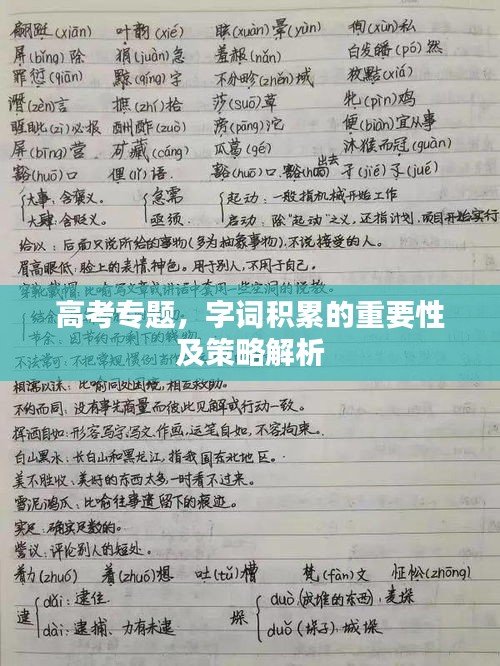 翩跹(xiān) 叶韵(xié) 眩(xuàn)晕(yùn) 徇(xùn)私
屏(bǐng)除 狷(juàn)急 羞赧(nǎn) 白发皤(pó)然
罪愆(qiān) 黥(qíng)字 不分畛(zhěn)域 狡黠(xiá)
谮(zèn)言 摭(zhí)拾 莎(suō)草 牝(pìn)鸡
睚眦(zì)必报 酬酢(zuò) 滂(pāng)沱 便(biàn)宜从事
屏(bīng)营 矿藏(cáng) 瓜葛(gé) 沐猴而冠(guàn)
豁(huō)口 俚(lǐ)语 豁(huō)口、豁(huō)出去 孑(jié)孓(jué)
大事:含褒义。 急需 起动:一般指机械开始工作
大肆:含贬义。 亟须 启动:除“起动”之义,还指计划、项目开始实行
给以:后面只说所给的事物(多为抽象事物),不说接受的人。
眉高眼低:脸上的表情,神色。用于别人,不用于自己。
穿靴戴帽:比喻写文章或讲话中套用一些空洞的说教。
高考专题,字词积累的重要性
及策略解析
相濡以沫:比喻同处困境,相互救助。
不约而同:没有事先商量而彼此见解或行动一致。
挥洒自如:形容写字、写文、作画,运笔自如,不容拘束。
白山黑水:长白山和黑龙江,指我国东北地区。
美不胜收:美好的东西太多,一时看不过来。
雪泥鸿爪:比喻往事遗留下的痕迹。
实足:确实足数的。
訾议:评论别人的短处。
着力(zhuó) 着(zhuó)想 吐(tǔ)槽 梵(fàn)文 怔忪(zhōng)
逮 dǎi:逮住 垛 duò(成堆的东西):麦垛
dài:逮捕、力有未逮 duǒ(垛子):城垛